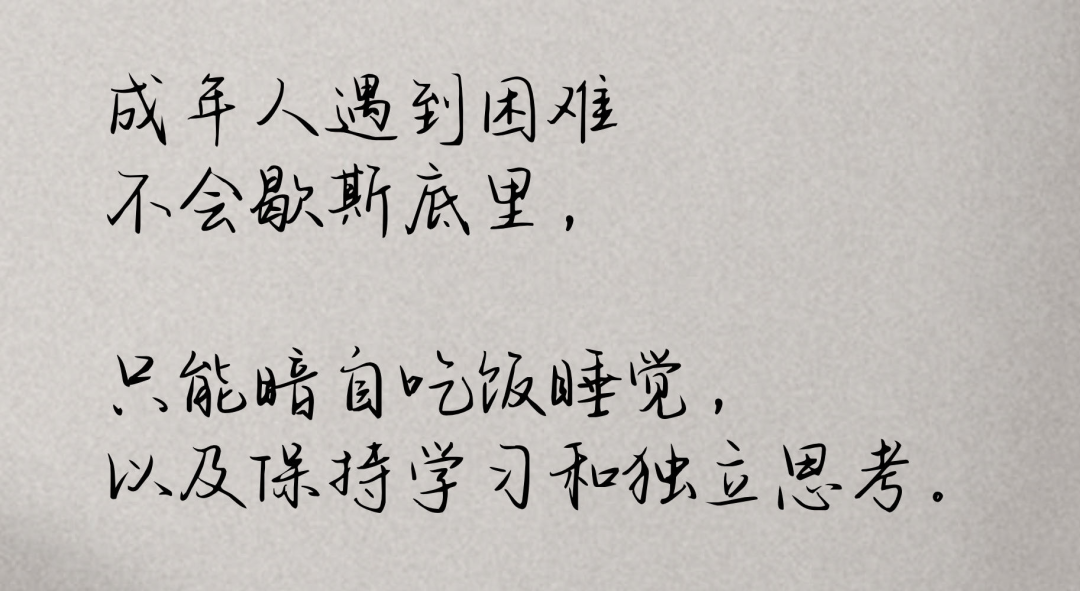 成年人遇到困难
不会歇斯底里，
只能暗自吃饭睡觉，
以及保持学习和独立思考。